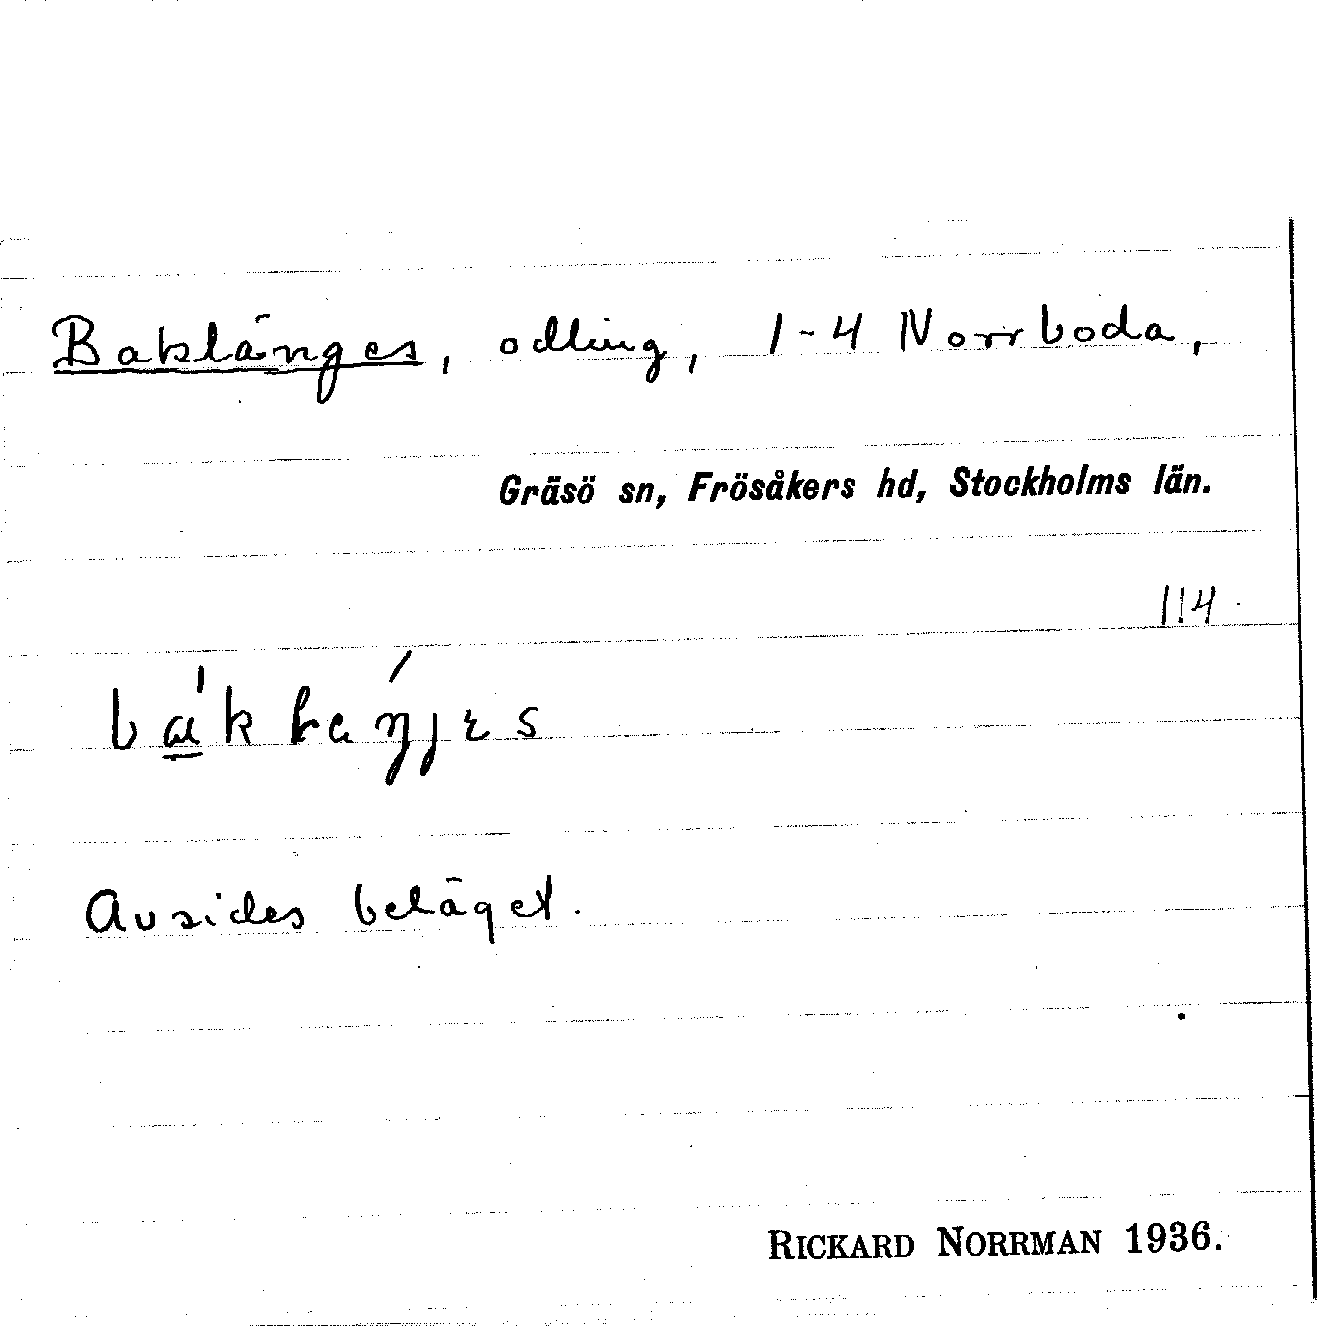 Baklänges, odling, 1-4 Norrboda,
Gräsö sn, Frösåkers hd, Stockholms län.
114
Avsides beläget.
RICKARD NORRMAN 1936.